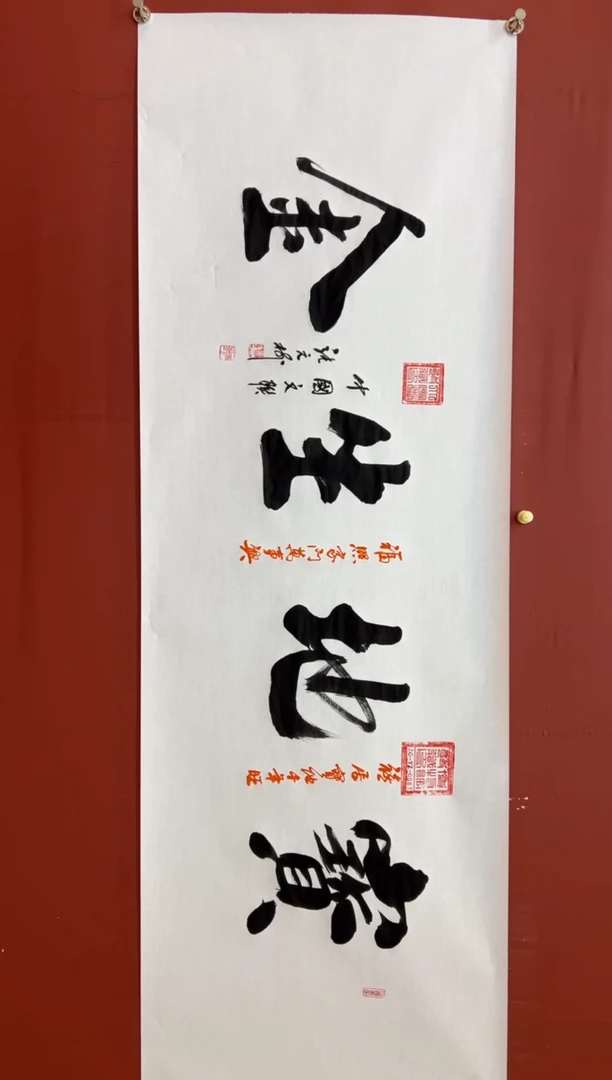 寶地生金
福居寶地千年旺
福照家門萬事興
國文聯